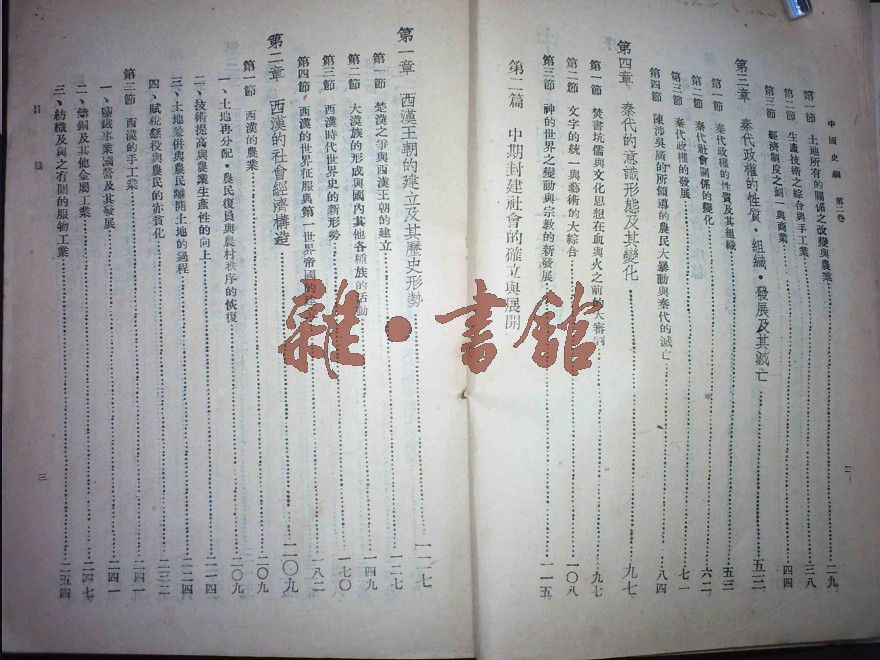 中國史綱 第二卷
二
第一節 土地所有的關係之改變與農業……二九
第二節 生產技術之綜合與手工業……三八
第三節 經濟制度之劃一與商業……四四
第三章 秦代政權的性質·組織·發展及其滅亡……五三
第一節 秦代政權的性質及其組織……五三
第二節 秦代社會關係的變化……六二
第三節 秦代政權的發展……七一
第四節 陳涉吳廣的所領導的農民大暴動與秦代的滅亡……八四
第四章 秦代的意識形態及其變化……九七
第一節 焚書坑儒與文化思想在血與火之前的大審判……九七
第二節 文字的統一與藝術的大綜合……一〇八
第三節 神的世界之變動與宗教的新發展……一一五
第二篇 中期封建社會的確立與展開
第一章 西漢王朝的建立及其歷史形勢……一二七
第一節 楚漢之爭與西漢王朝的建立……一二七
第二節 大漢族的形成與國內其他各種族的活動……一四九
第三節 西漢時代世界史的新形勢……一七〇
第四節 西漢的世界征服與第一世界帝國的……一八二
第二章 西漢的社會經濟構造……二〇九
第一節 西漢的農業……二〇九
一、土地再分配·農民復員與農村秩序的恢復……二〇九
二、技術提高與農業生產性的向上……二一四
三、土地兼併與農民離開土地的過程……二二四
四、賦稅徭役與農民的赤貧化……二三二
第二節 西漢的手工業……二四一
一、鹽鐵事業國營及其發展……二四一
二、鑄銅及其他金屬工業……二四七
三、紡織及與之有關的服物工業……二五四
目 錄
三
雜·書館